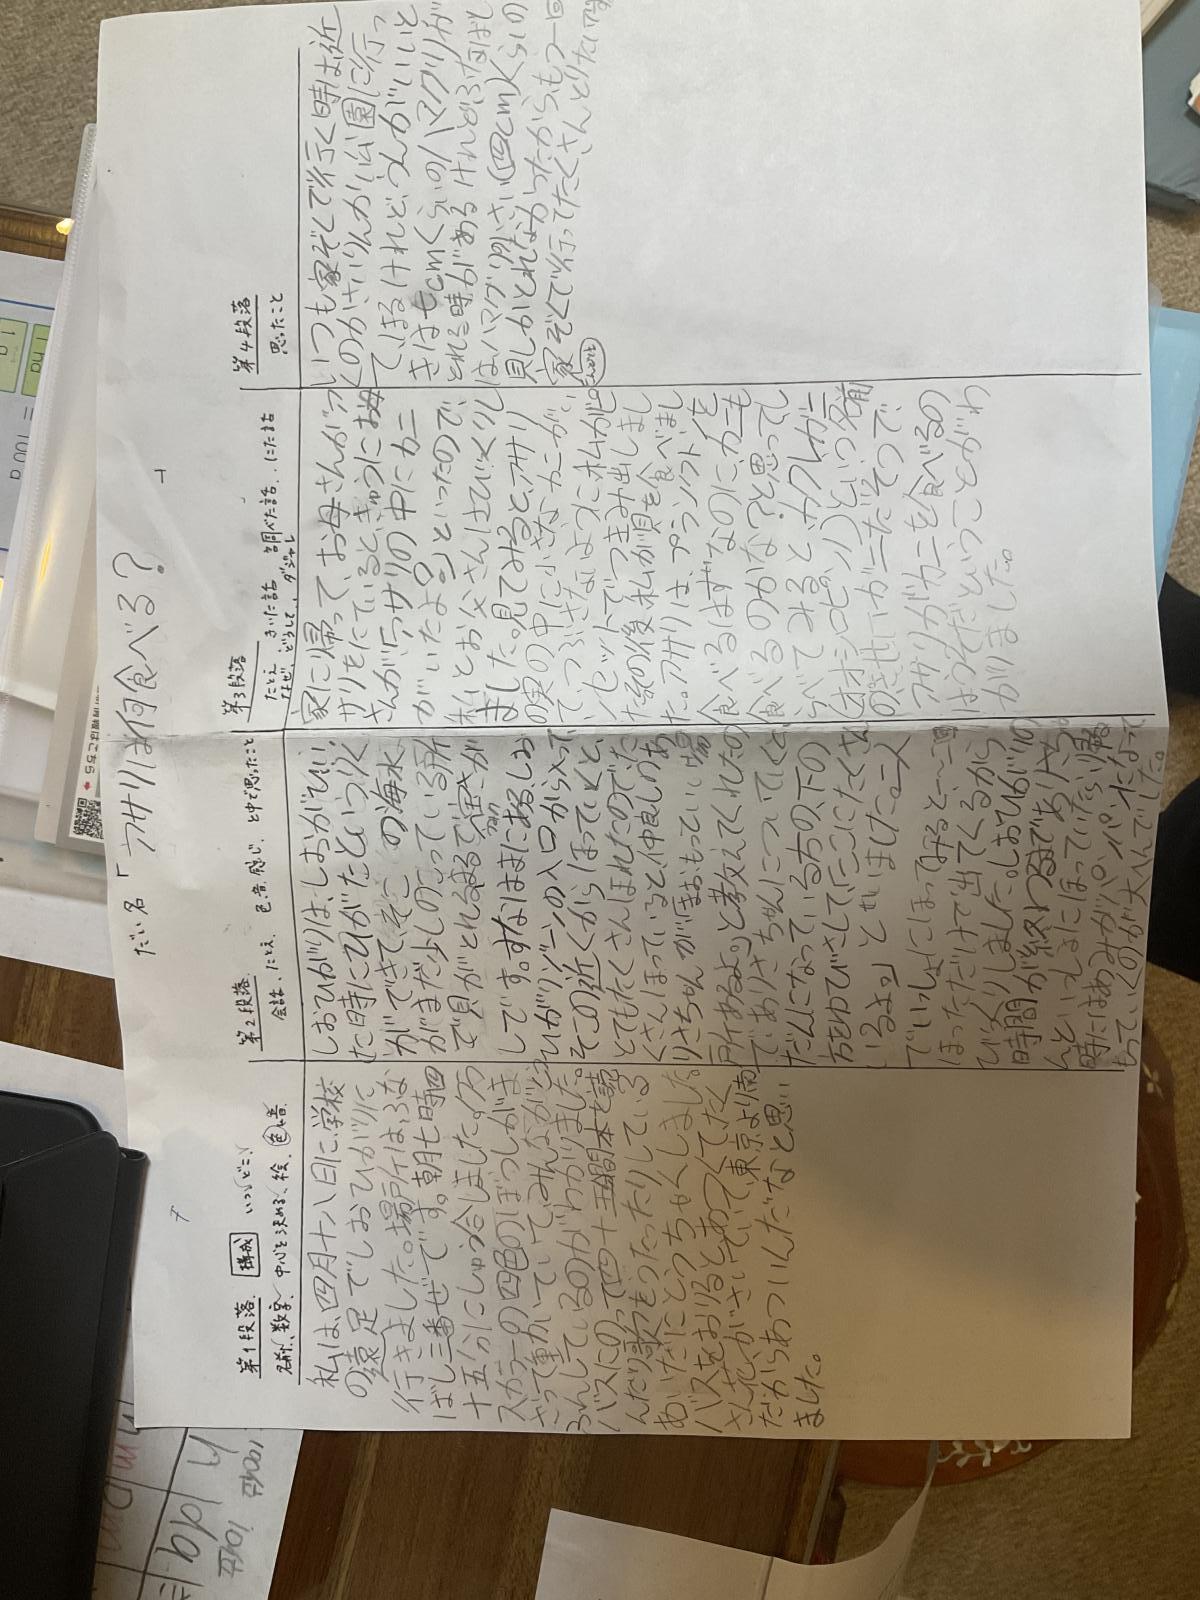 だい名「アサリは何食べる？
第1段落 構成 いつ、どこ、
名前、数字、中心を決める、絵、色、音
私は、四月十八日に学校
の遠足でしおひがりに
行きました。場所は、ふな
ばし三番ぜです。朝七時四
十五分にしゅう合しました。万
スカラーの四色のぼうしがま
ざって動いていて、みんながこう
ふんしているのがわかりました。
バスにのって四十五分間本を読
んだり歌をうたったりしている
あいだにとうちゃくしました。
バスをおりるとあつくてたく
さん花がさいていて、東京より南
だからあついんだなと思い
ました。
第2段落
会話、たとえ、色、音、感じ、と中で思ったこと
しおひがりは、しおがひい
た時にひがたというりく
ができて、そこの海水
がまだ少しのこっている所
で貝がとれるまで宝さが
しです。すなはまにある、しお
ひがりゾーンの入口から入って
そこの近くからほっていくと、
とてもたくさんほれたのでた
くさんほっていると、仲良しのあ
りさちゃんが「ほおもっていい場
所あるよ。」と教えてくれたの
でありさちゃんについていくと、
だんになっている方の、下の
方をゆびさして「ここにたくさん
いるよ。」といいました。二人
でいっしょにほってみると、一回
ほっただけで出てくるから
びっくりしました。しおひがりの
時間が終わるまでありさちゃ
んといっしょにほっていたら、帰る
時にはあみがパンパンになって
もっていくのが大へんでした。
第3段落
たとえ、きいた話、調べた話、にた話
なぜ、どうして、ダジャレ
家に帰って、お母さんがア
サリをにていると、きゅうにお母
さんが「アサリの中にカニ
がいたよ。」といったので、
私とお父さんはびっくりし
ました。見てみると、アサリ
の実の中に小さなカニがい
て、つぶさないように私がピ
ンセットでつまみ出しまし
た。その後、私が貝を食べまし
た。アサリは、プランクトンを
食べるはずなのに、カニも
食べるのかな？と思ってし
らべてみると、カクレガニ
(オオシロピンノ)という名前
のきせいガニだそうで、
アサリがカニを食べるの
はうそだということがわ
かりました。
第4段落
思ったこと
いつも家ぞくで行く時は近
くのかさいりんかい公園に行っ
てほるけれど、うんがいいと
きは七cmくらいのハマグリが
とれる時があるけれどふなばし
は、ハマグリ小さい(四cm)くらいの
貝しかとれなかったから、もう一回
家ぞくで行ってたくさんとりたいです。